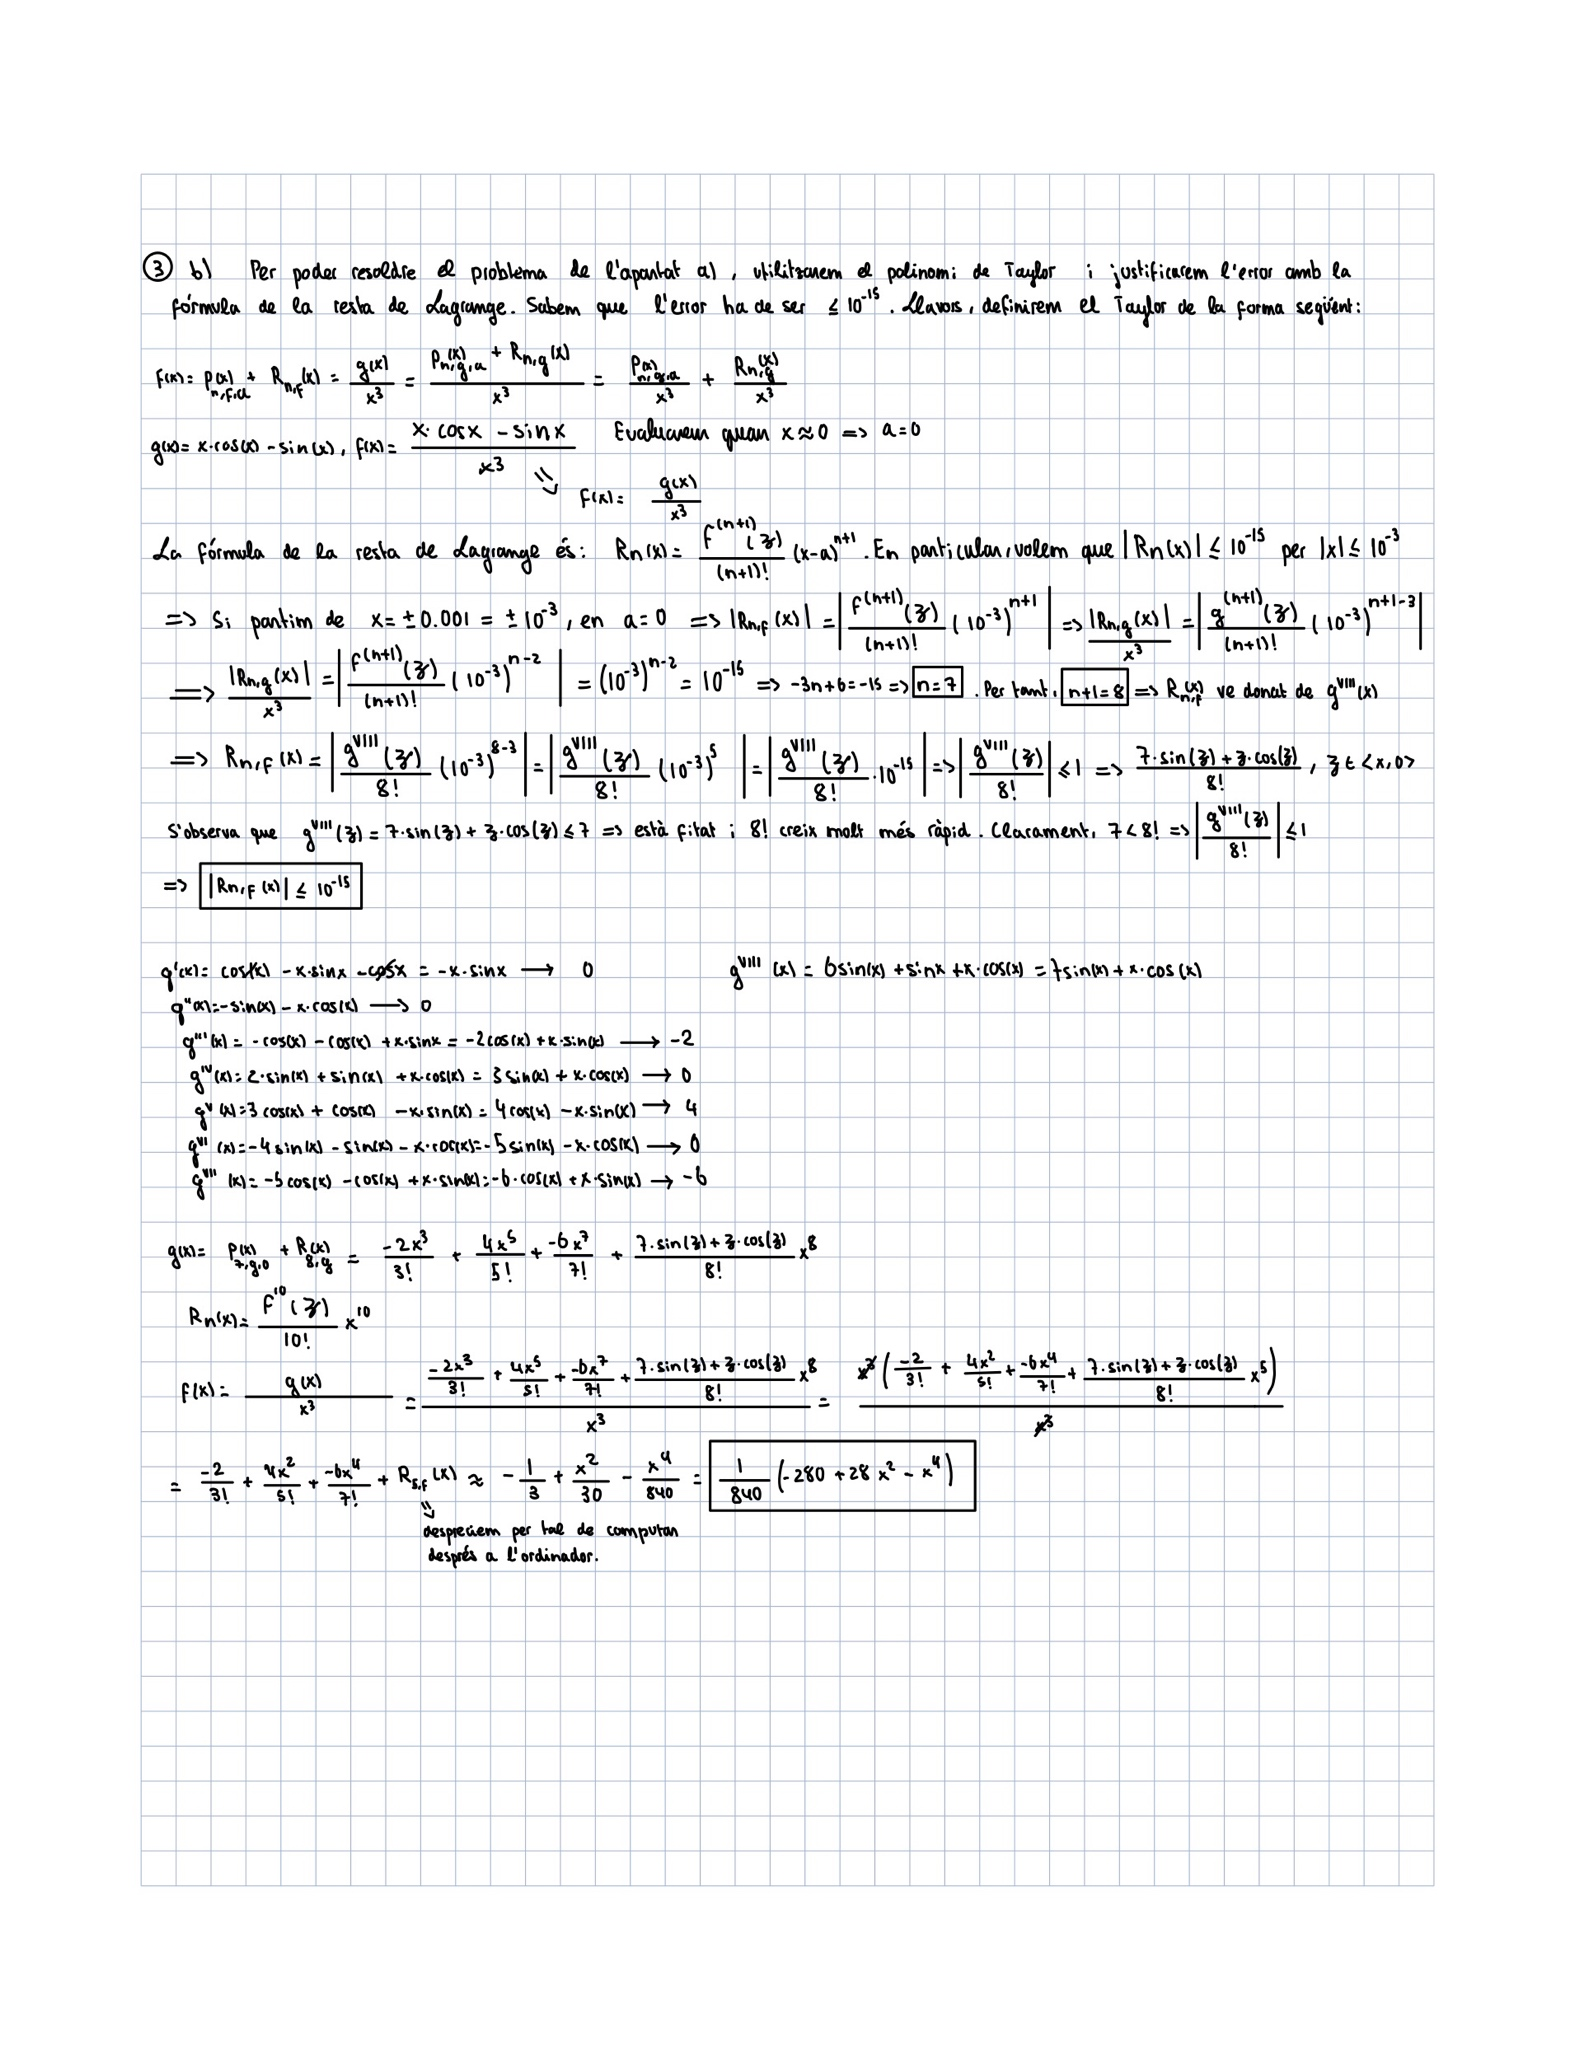 ③ b) Per poder resoldre el problema de l'apartat a), utilitzarem el polinomi de Taylor i justificarem l'error amb la
fórmula de la resta de Lagrange. Sabem que l'error ha de ser ≤ 10^-15. Llavors, definirem el Taylor de la forma següent:
f(x) = P_{n,f,a}(x) + R_{n,f}(x) = g(x)/x^3 = (P_{n,g,a}(x) + R_{n,g}(x))/x^3 = P_{n,g,a}(x)/x^3 + R_{n,g}(x)/x^3
g(x) = x·cos(x) - sin(x), f(x) = (x·cosx - sinx)/x^3 Evaluarem quan x≈0 => a=0
=> f(x) = g(x)/x^3
La fórmula de la resta de Lagrange és: Rn(x) = f^(n+1)(ʒ)/(n+1)! (x-a)^{n+1}. En particular, volem que |Rn(x)| ≤ 10^-15 per |x| ≤ 10^-3
=> Si partim de x = ±0.001 = ±10^-3, en a=0 => |R_{n,f}(x)| = |f^(n+1)(ʒ)/(n+1)! (10^-3)^{n+1}| => |R_{n,g}(x)|/x^3 = |g^(n+1)(ʒ)/(n+1)! (10^-3)^{n+1-3}|
=> |R_{n,g}(x)|/x^3 = |f^(n+1)(ʒ)/(n+1)! (10^-3)^{n-2}| = (10^-3)^{n-2} = 10^-15 => -3n+6=-15 => n=7. Per tant, n+1=8 => R_{n,f}(x) ve donat de g^VIII(x)
=> R_{n,f}(x) = |g^VIII(ʒ)/8! (10^-3)^{8-3}| = |g^VIII(ʒ)/8! (10^-3)^5| = |g^VIII(ʒ)/8! ·10^-15| => |g^VIII(ʒ)/8!| ≤ 1 => (7·sin(ʒ) + ʒ·cos(ʒ))/8!, ʒ ∈ <x,0>
S'observa que g^VIII(ʒ) = 7·sin(ʒ) + ʒ·cos(ʒ) ≤ 7 => està fitat i 8! creix molt més ràpid. Clarament, 7<8! => |g^VIII(ʒ)/8!| ≤ 1
=> |R_{n,f}(x)| ≤ 10^-15
g'(x) = cos(x) - x·sinx - cosx = -x·sinx → 0 g^VIII(x) = 6sin(x) + sinx + x·cos(x) = 7sin(x) + x·cos(x)
g''(x) = -sin(x) - x·cos(x) → 0
g'''(x) = -cos(x) - cos(x) + x·sinx = -2cos(x) + x·sin(x) → -2
g^IV(x) = 2·sin(x) + sin(x) + x·cos(x) = 3sin(x) + x·cos(x) → 0
g^V(x) = 3cos(x) + cos(x) - x·sin(x) = 4cos(x) - x·sin(x) → 4
g^VI(x) = -4sin(x) - sin(x) - x·cos(x) = -5sin(x) - x·cos(x) → 0
g^VII(x) = -5cos(x) - cos(x) + x·sin(x) = -6·cos(x) + x·sin(x) → -6
g(x) = P_{7,g,0}(x) + R_{8,g}(x) = -2x^3/3! + 4x^5/5! + -6x^7/7! + (7·sin(ʒ) + ʒ·cos(ʒ))/8! x^8
Rn(x) = f^10(ʒ)/10! x^10
f(x) = g(x)/x^3 = (-2x^3/3! + 4x^5/5! + -6x^7/7! + (7·sin(ʒ) + ʒ·cos(ʒ))/8! x^8)/x^3 = x^3(-2/3! + 4x^2/5! + -6x^4/7! + (7·sin(ʒ) + ʒ·cos(ʒ))/8! x^5)/x^3
= -2/3! + 4x^2/5! + -6x^4/7! + R_{5,f}(x) ≈ -1/3 + x^2/30 - x^4/840 = 1/840 (-280 + 28x^2 - x^4)
=> despreciem per tal de computar
després a l'ordinador.